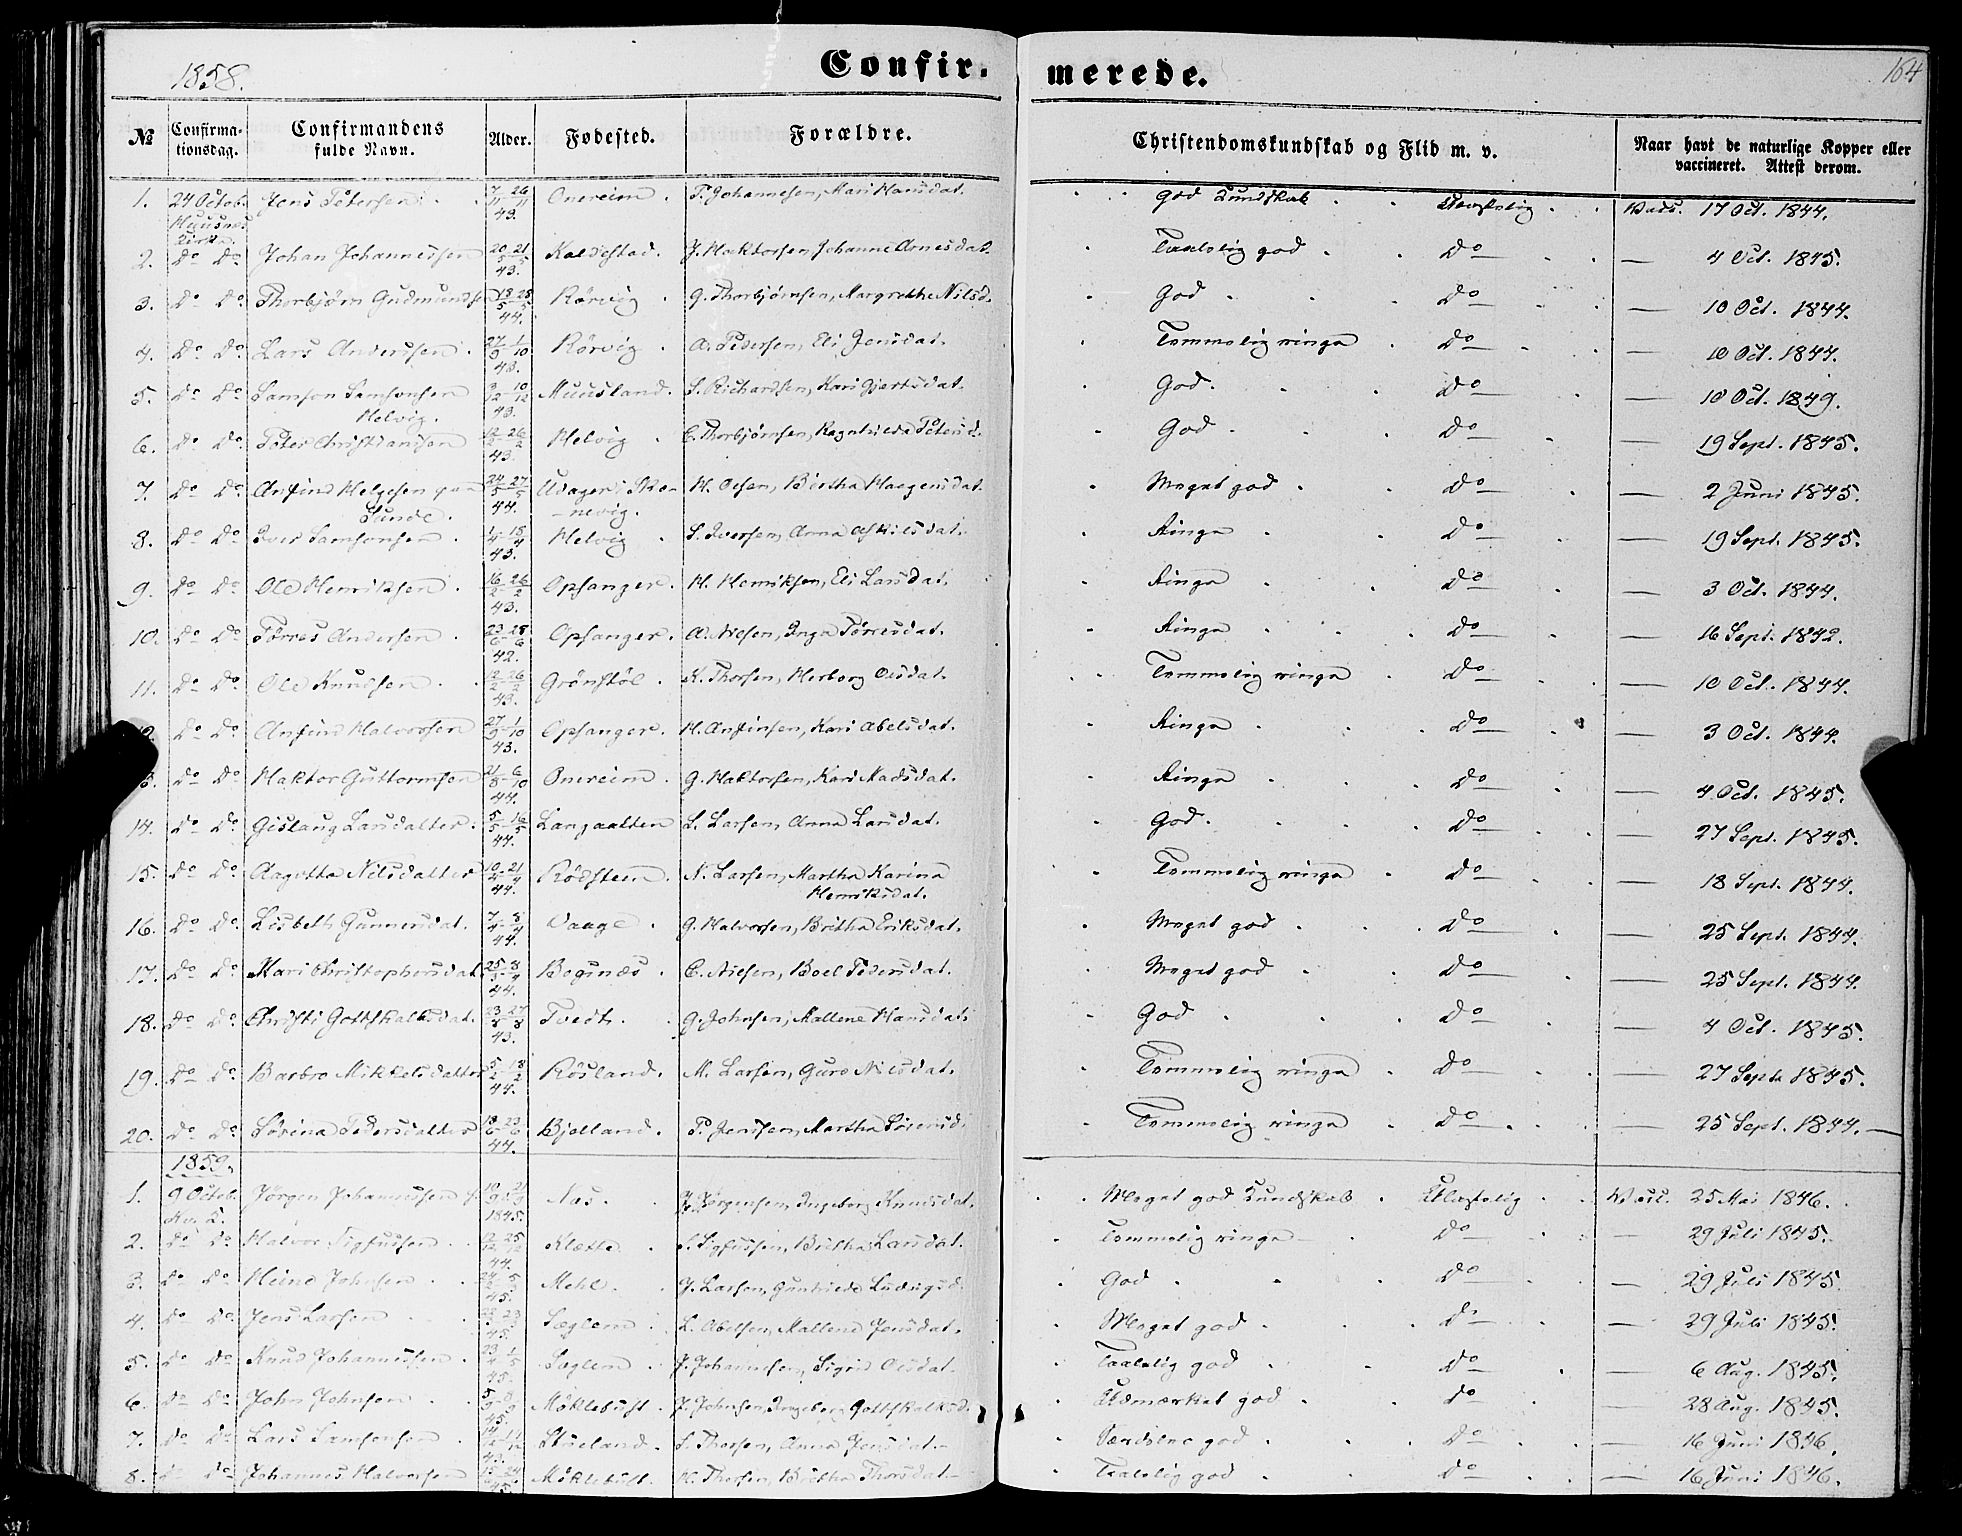 1858.
Confir-
merede.
164
№
Confirma-
tionsdag.
Confirmandens
fulde Navn.
Alder.
Fødested.
Forældre.
Christendomskundskab og Flid m. v.
Naar havt de naturlige Kopper eller
vaccineret. Attest derom.
1. 24 Octob. Jens Petersen 43. Onereim. P. Johannesen, Mari Hansdat. God Kundskab Vacc. 17 Oct. 1844.
Huusnæs
Kirke.
2. Do Do Johan Johannessen 20/5 21/5 43. Kaldestad. J. Haktorsen, Johanne Arnesdat. Taalelig god Do — 4 Oct. 1845.
3. Do Do Thorbjørn Gudmunds. 44. Rörvig G. Thorbjørnsen, Margrethe Nilsd. God Do — 10 Oct. 1844.
4. Do Do Lars Andersen 27/9 1/10 43. Rörvig A. Pedersen, Eli Jensdat. Temmelig ringe Do — 10 Oct. 1844.
5. Do Do Samson Samsonsen 3/12 10/12 43. Muusland. S. Richardsen, Kari Gjertsdat. God. Do — 10 Oct. 1849.
Helvig.
6. Do Do Peter Christiansen 12/2 26/2 43. Helvig C. Thorbjørnsen, Ragnhilda Petersd. God Do — 19 Sept. 1845.
7. Do Do Anfind Helgesen 24/5 27/5 44. Udager i Ska- H. Olsen, Birtha Haagensdat. Meget god Do — 2 Juni 1845.
Sunde. nevig.
8. Do Do Iver Samsonsen 43. Helvig S. Iversen, Anna Askilsdat. Ringe Do — 19 Sept. 1845.
9. Do Do Ole Henriksen 16/2 26/2 43. Opsanger. H. Henriksen, Eli Larsdat. Ringe Do — 3 Oct. 1844.
10. Do Do Törres Andersen 42. Opsanger. A. Nilsen, Inga Törresdat. Ringe Do — 16 Sept. 1842.
11. Do Do Ole Knudsen 12/2 26/2 43. Grönstöl. K. Thorsen, Herborg Olsdat. Temmelig ringe Do — 10 Oct. 1844.
Do Do Anfind Halvorsen 27/9 1/10 43. Opsanger. H. Anfinsen, Kari Abelsdat. Ringe Do — 3 Oct. 1844.
3. Do Do Haktor Guttormsen 44. Onereim. G. Haktorsen, Kari Madsdat. Ringe Do — 4 Oct. 1845.
14. Do Do Gislaug Larsdatter. 5/5 16/5 44. Langaatten L. Larsen, Anna Larsdat. God. Do — 27 Sept. 1845.
15. Do Do Aagotta Nilsdatter 10/4 21/4 44. Rödsteen. N. Larsen, Martha Karina Temmelig ringe Do — 18 Sept. 1844.
Henriksdat.
16. Do Do Lisbeth Gunnersdat. 7/4 8/4 44. Vaage G. Halvorsen, Britha Eriksdat. Meget god Do — 25 Sept. 1844.
17. Do Do Kari Christophersdat. 44. Bogsnæs. C. Nilsen, Boel Pedersdat. Meget god Do — 25 Sept. 1844.
18. Do Do Christi Gottskalksdat. 23/8 27/8 43. Tvedt. G. Johnsen, Mallene Hansdat. God Do — 4 Oct. 1845.
19. Do Do Barbro Mikkelsdatter 5/2 18/2 44. Rösland. M. Larsen, Guro Nilsdat. Temmelig ringe Do — 27 Sept. 1845.
20. Do Do Sörina Pedersdatter 18/6 23/6 44. Kjelland. P. Jensen, Martha Sörensd. Temmelig ringe Do — 25 Sept. 1844. —
1859.
1. 9 Octob. Jörgen Johannessen 1845. Næs. J. Jörgensen, Ingeborg Knudsdat. Meget god Kundskab Vacc. 25 Mai 1846.
2. Do Do Halvor Sigfussen 12/12 25/12 44. Klætte S. Sigfussen, Britha Larsdat. Temmelig ringe Do — 29 Juli 1845.
3. Do Do Johnsen 45. Mehl. J. Larsen, Gunhilde Ludvigsd. God Do — 29 Juli 1845.
4. Do Do Jens Larsen 45. Sæglem L. Abelsen, Mallene Jensdat. Meget god Do — 29 Juli 1845.
5. Do Do Knud Johannessen 23/4 1/5 45. Sæglem J. Johannesen, Sigrid Olsdat. Taalelig god Do — 6 Aug. 1845.
6. Do Do John Johnsen 45. Möklebust. J. Johnsen, Ingeborg Gottskalksd. Udmærket god Do — 28 Aug. 1845.
7. Do Do Lars Samsonsen Stueland. S. Thorsen, Anna Jensdat. Særdeles god Do — 16 Juni 1846.
8. Do Do Johannes Halvorsen 45. Möklebust. H. Thorsen, Britha Thorsdat. Taalelig god Do — 16 Juni 1846.